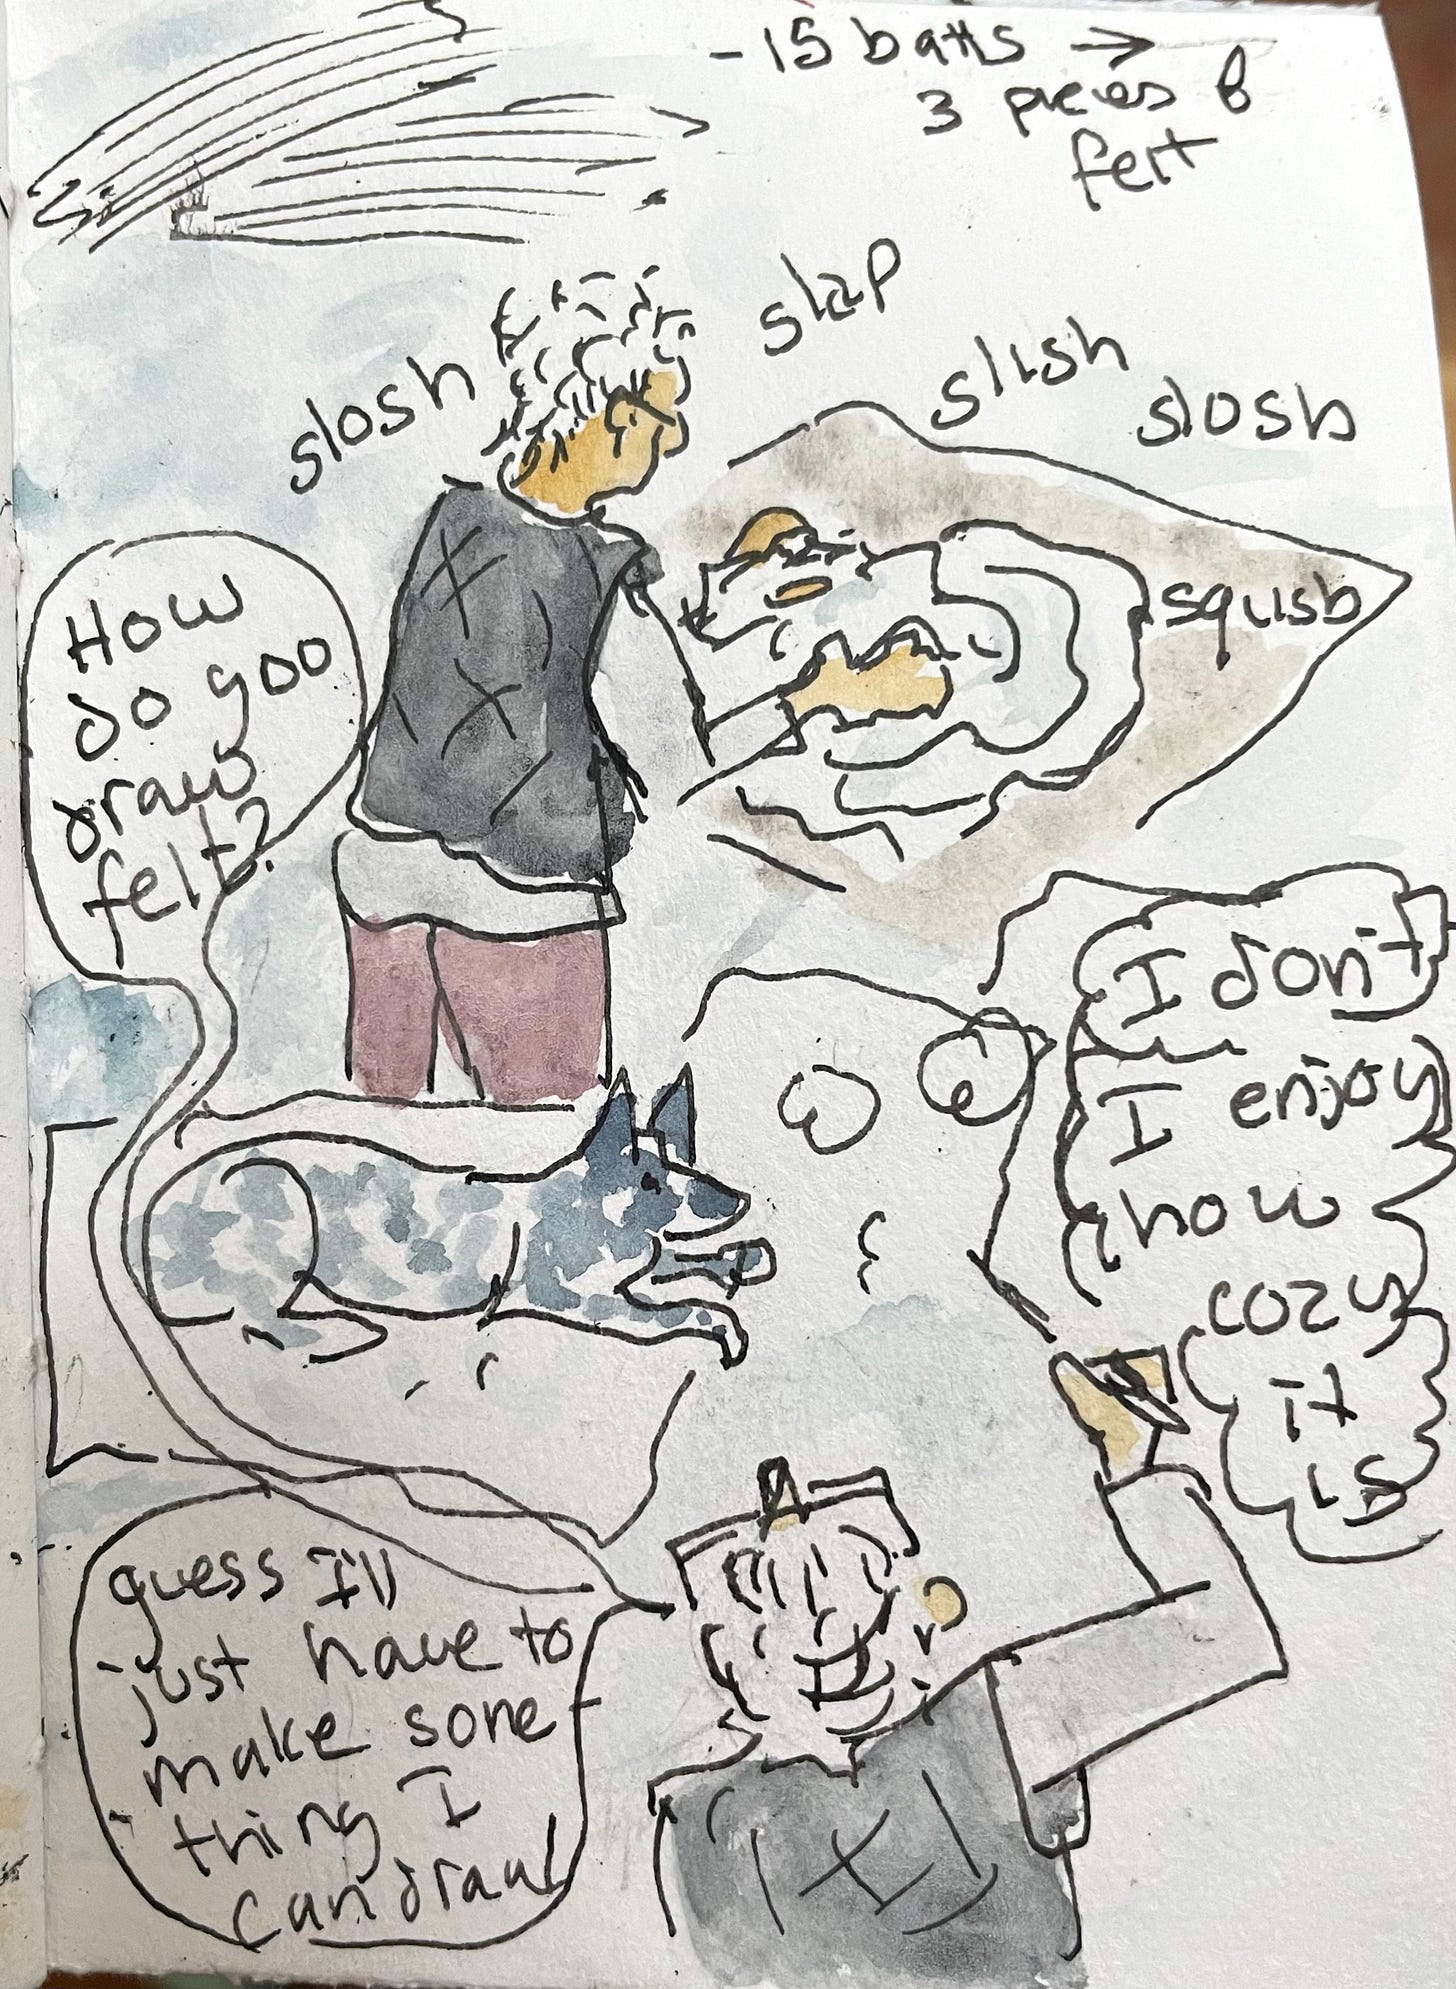 - 15 batts →
3 pieces of
felt
slosh
slap
slish
slosh
squish
How
do you
draw
felt?
I don't
I enjoy
how
cozy
it
is
guess I'll
just have to
make some
thing I
can draw